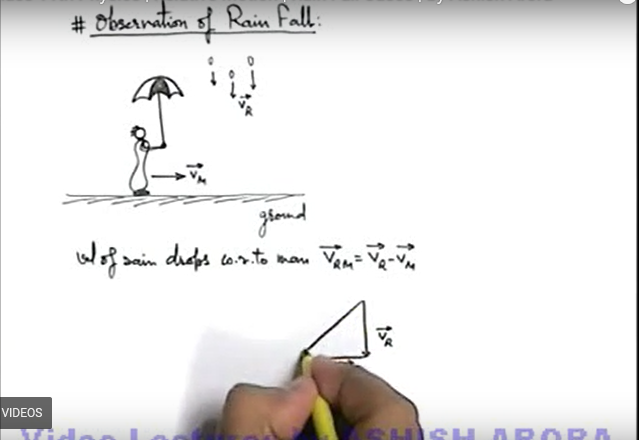 # Observation of Rain Fall:
V⃗R
V⃗M
ground
vel of rain drops w.r. to man V⃗RM = V⃗R - V⃗M
V⃗R
VIDEOS
Video Lectures by ASHISH ARORA